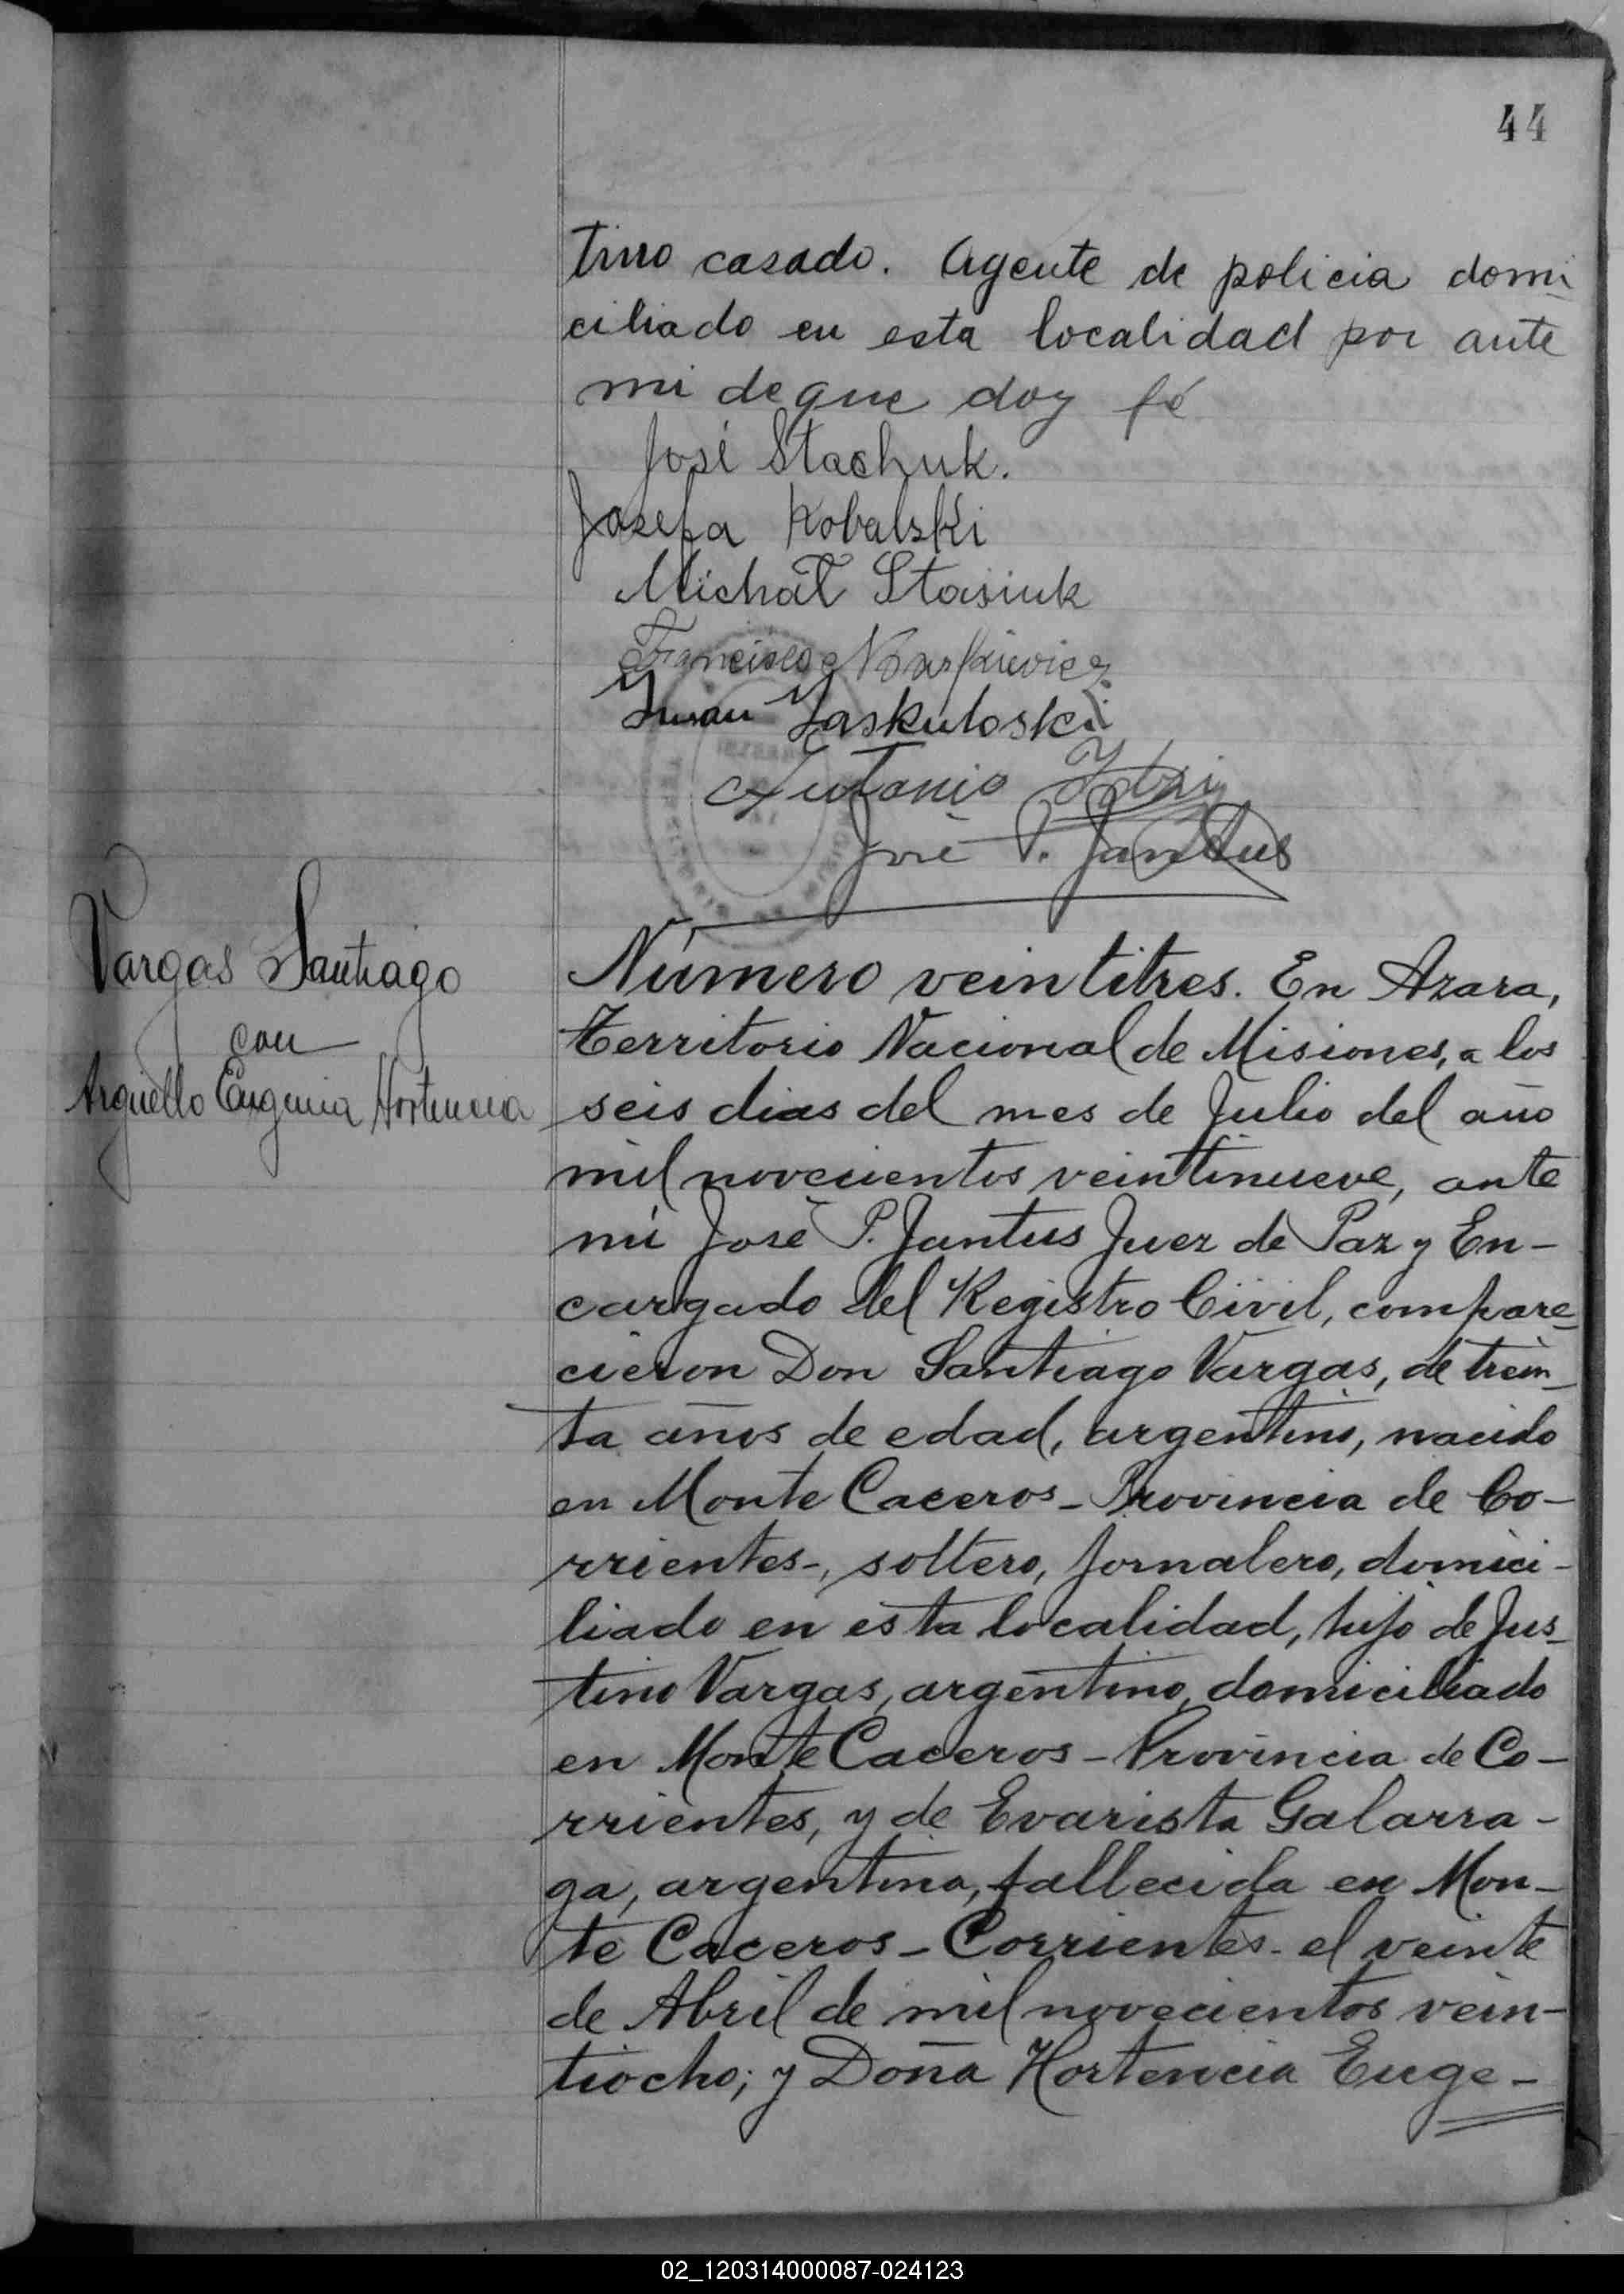 44
tino casado. Agente de policia domi
ciliado en esta localidad por ante
mi de que doy fé
José Stachuk.
Josefa Kobalski
Michał Stasiuk
Francisco
Juan Jaskuloski
Antonio
José P. Jantus
Vargas Santiago
con
Arguello Eugenia Hortencia
Número veintitres. En Azara,
Territorio Nacional de Misiones, a los
seis dias del mes de Julio del año
mil novecientos veintinueve, ante
mi José P. Jantus Juez de Paz y En-
cargado del Registro Civil, compare-
cieron Don Santiago Vargas, de trein-
ta años de edad, argentino, nacido
en Monte Caceros - Provincia de Co-
rrientes-, soltero, jornalero, domici-
liado en esta localidad, hijo de Jus-
tino Vargas, argentino, domiciliado
en Monte Caceros - Provincia de Co-
rrientes, y de Evarista Galarra-
ga, argentina, fallecida en Mon-
te Caceros - Corrientes - el veinte
de Abril de mil novecientos vein-
tiocho; y Doña Hortencia Euge-
02_120314000087-024123